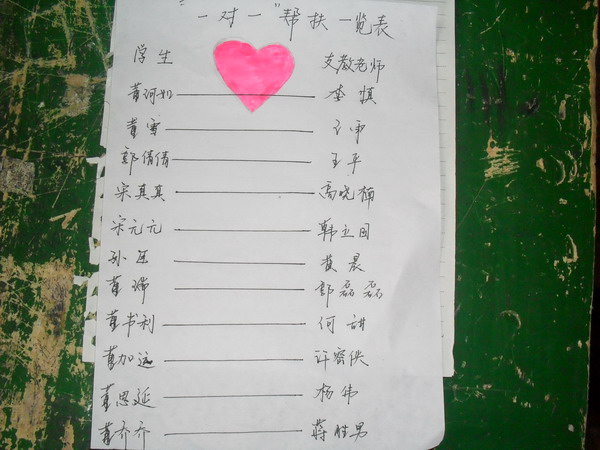 一对一"帮扶一览表
学生 支教老师
董河如 李慎
董雪
郭倩倩 王平
宋真真 高晓楠
宋元元 韩立国
孙 黄晨
董瑞 郭磊磊
董书利 何甜
董加远 许密佚
董思延 杨伟
董乔乔 蒋胜男